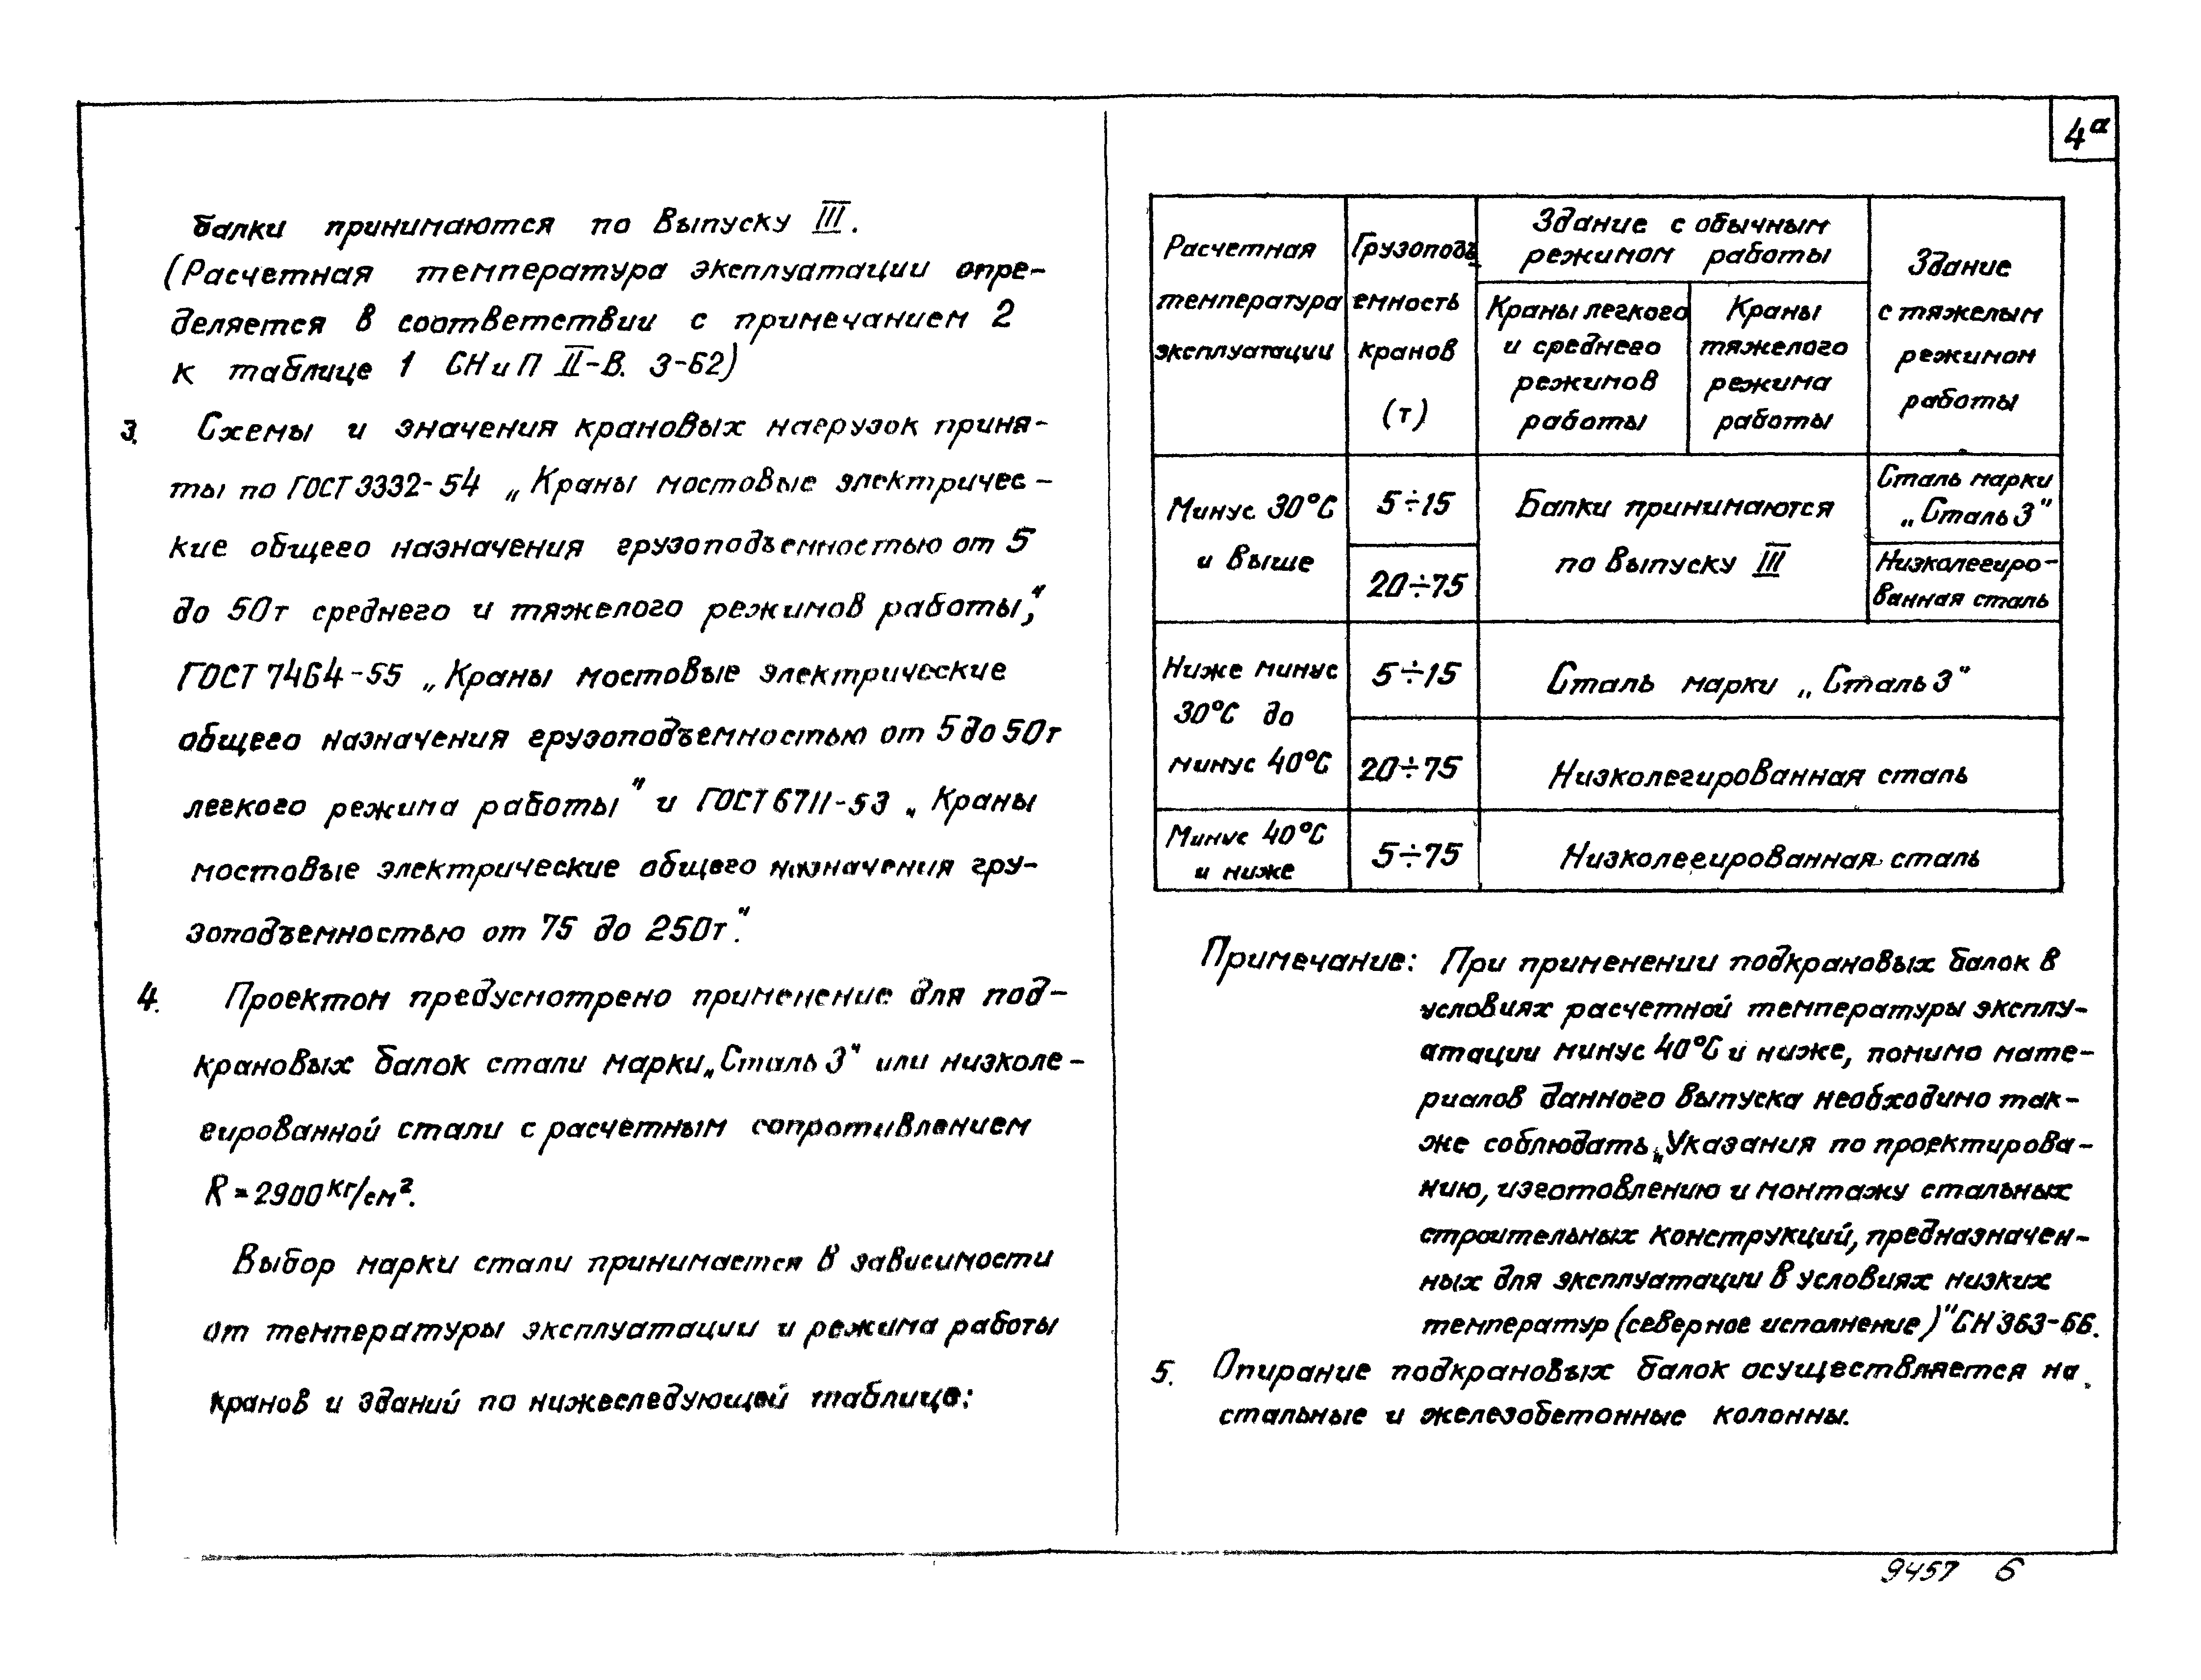 4а
балки принимаются по Выпуску III.
(Расчетная температура эксплуатации опре-
деляется в соответствии с примечанием 2
к таблице 1 СНиП II-В. 3-62)
3. Схемы и значения крановых нагрузок приня-
ты по ГОСТ 3332-54 „Краны мостовые электричес-
кие общего назначения грузоподъемностью от 5
до 50т среднего и тяжелого режимов работы“,
ГОСТ 7464-55 „Краны мостовые электрические
общего назначения грузоподъемностью от 5 до 50т
легкого режима работы“ и ГОСТ 6711-53 „Краны
мостовые электрические общего назначения гру-
зоподъемностью от 75 до 250т“.
4. Проектом предусмотрено применение для под-
крановых балок стали марки „Сталь 3“ или низколе-
гированной стали с расчетным сопротивлением
R = 2900 кг/см².
Выбор марки стали принимается в зависимости
от температуры эксплуатации и режима работы
кранов и зданий по нижеследующей таблице:
Расчетная
температура
эксплуатации
Грузоподъ
емность
кранов
(т)
Здание с обычным
режимом работы
Краны легкого
и среднего
режимов
работы
Краны
тяжелого
режима
работы
Здание
с тяжелым
режимом
работы
Минус 30°С
и выше
5÷15
20÷75
Балки принимаются
по Выпуску III
Сталь марки
„Сталь 3“
Низколегиро-
ванная сталь
Ниже минус
30°С до
минус 40°С
5÷15
Сталь марки „Сталь 3“
20÷75
Низколегированная сталь
Минус 40°С
и ниже
5÷75
Низколегированная сталь
Примечание: При применении подкрановых балок в
условиях расчетной температуры эксплу-
атации минус 40°С и ниже, помимо мате-
риалов данного выпуска необходимо так-
же соблюдать „Указания по проектирова-
нию, изготовлению и монтажу стальных
строительных конструкций, предназначен-
ных для эксплуатации в условиях низких
температур (северное исполнение)“ СН 363-66.
5. Опирание подкрановых балок осуществляется на
стальные и железобетонные колонны.
9457 6